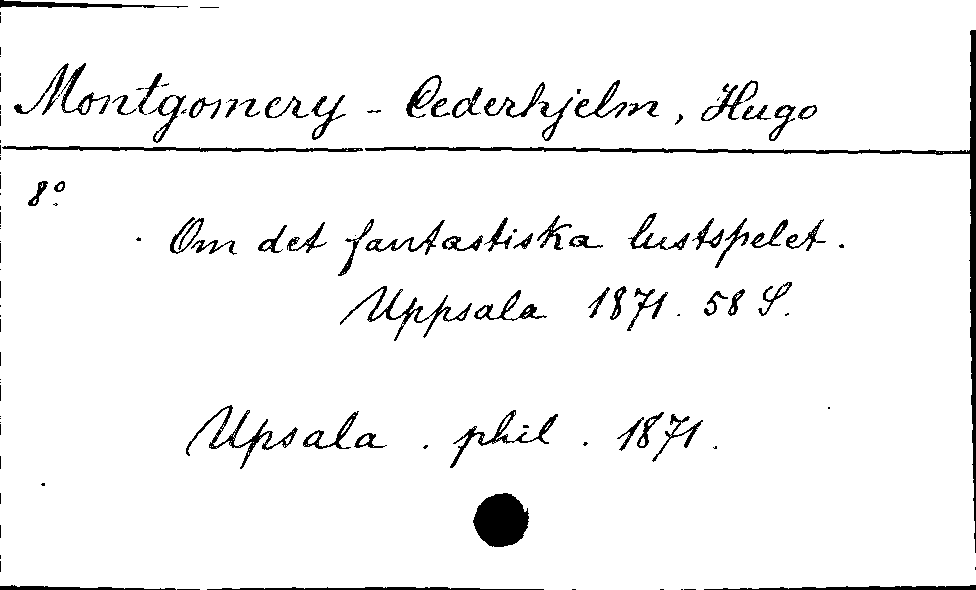 Montgomery - Cederhjelm, Hugo
8°
Om det fantastiska lustspelet.
Uppsala 1871. 58 S.
Upsala. phil. 1871.